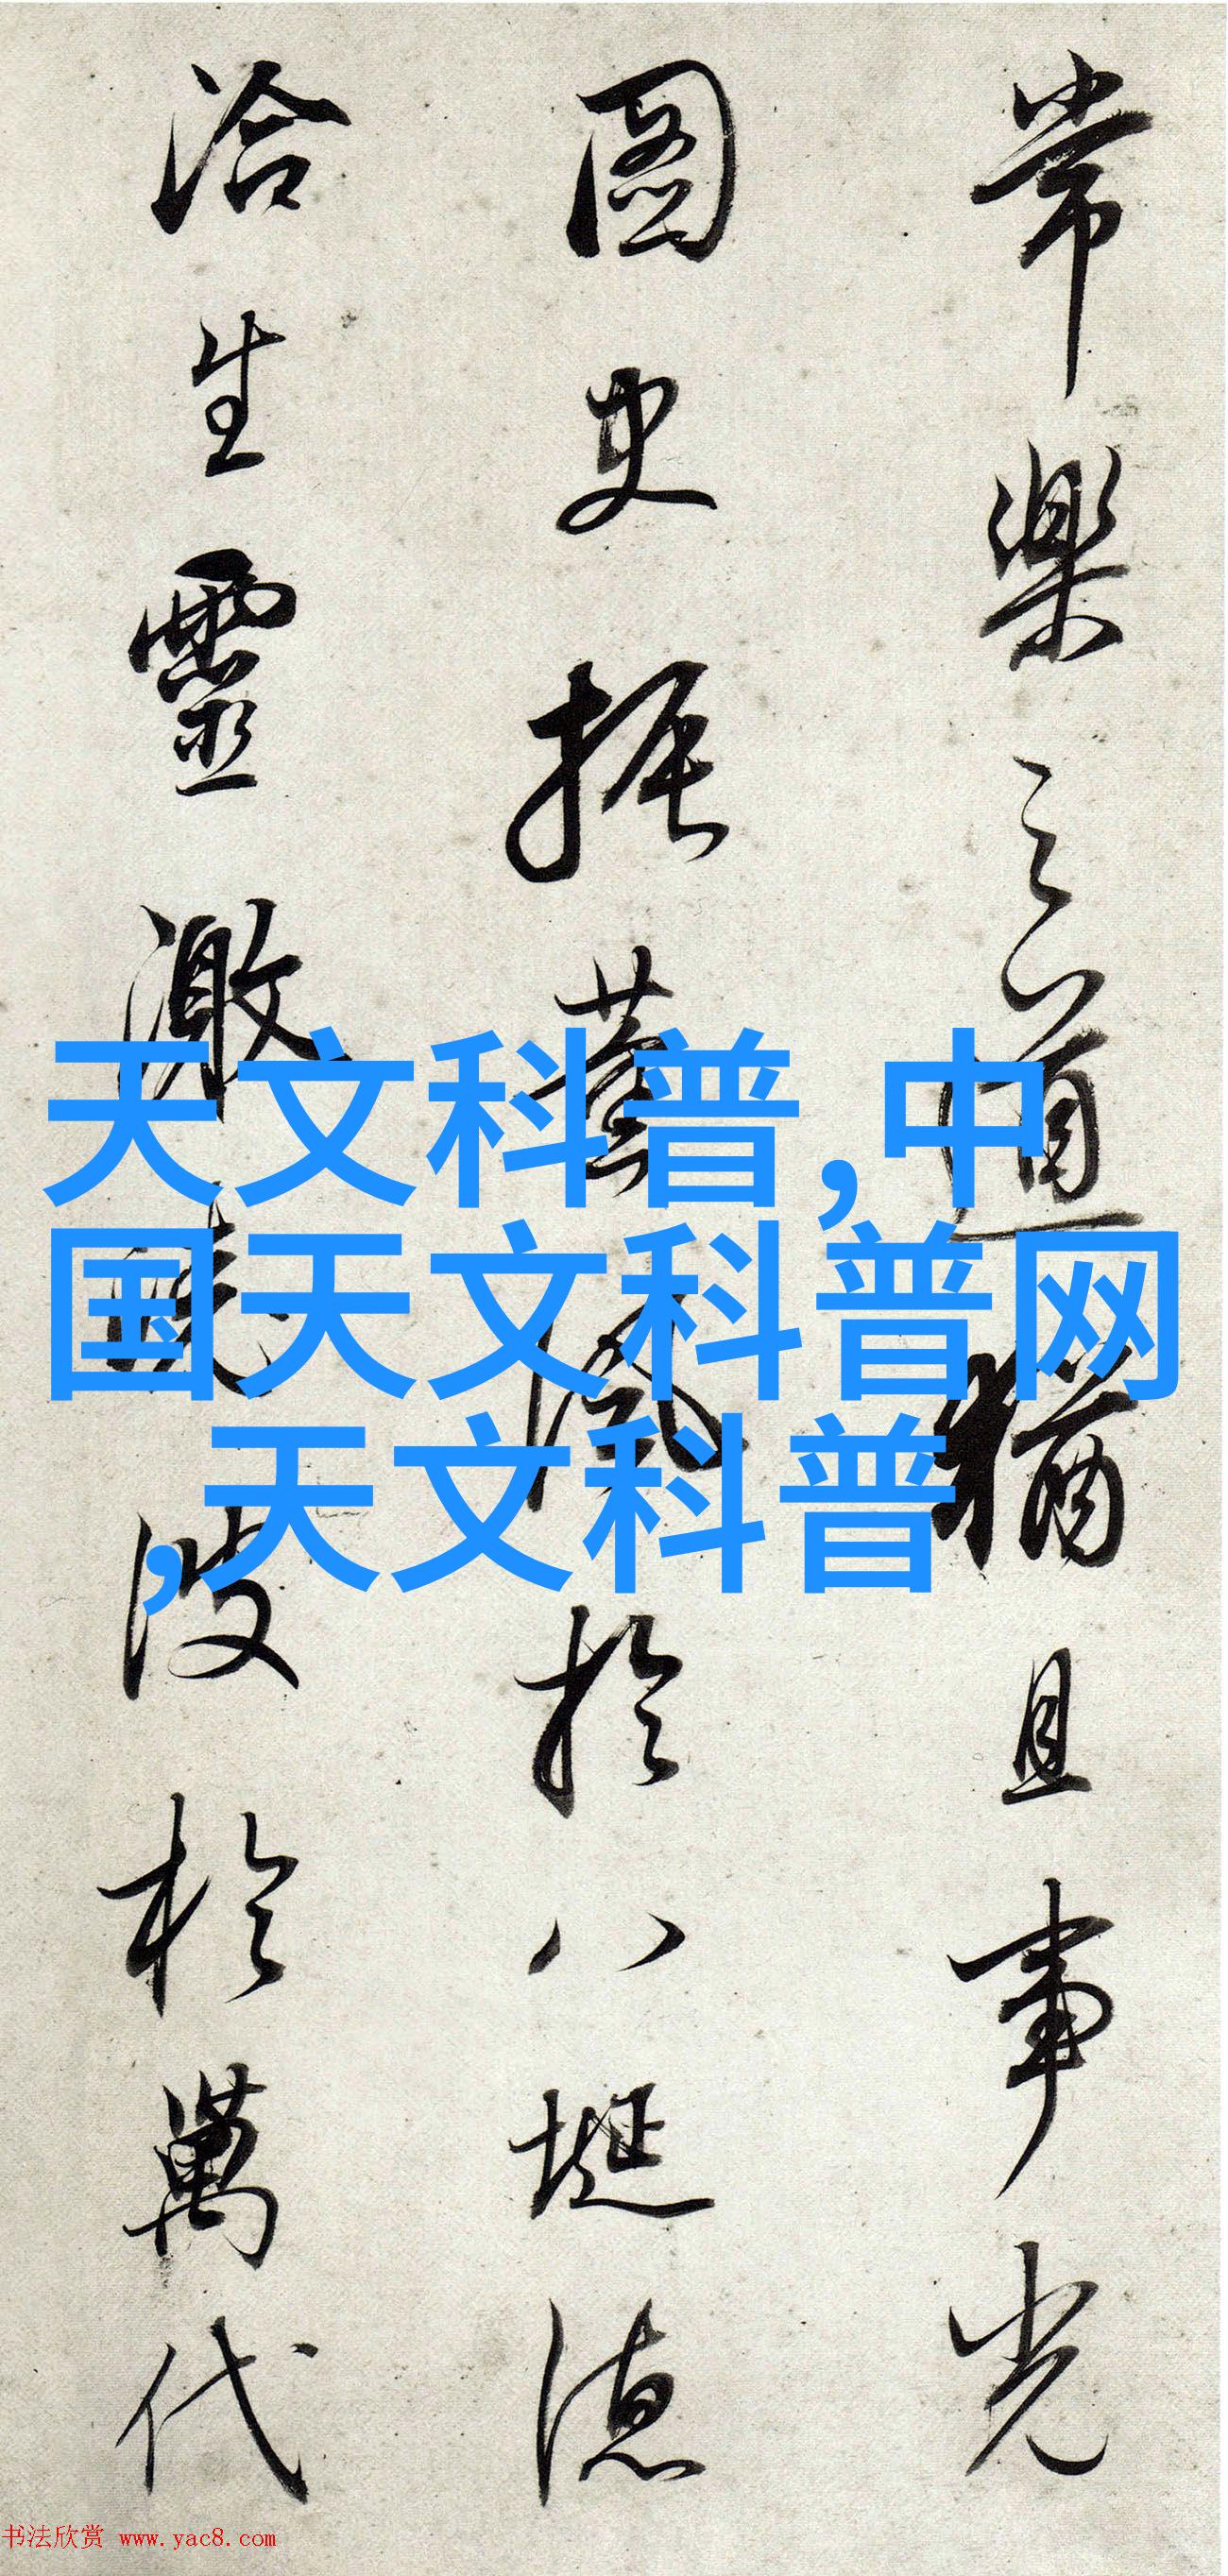 常樂之道猶且事光
圖史振薰風於八埏德
洽生靈激波於萬代
天文科普,中
国天文科普网
,天文科普
书法欣赏 www.yac8.com